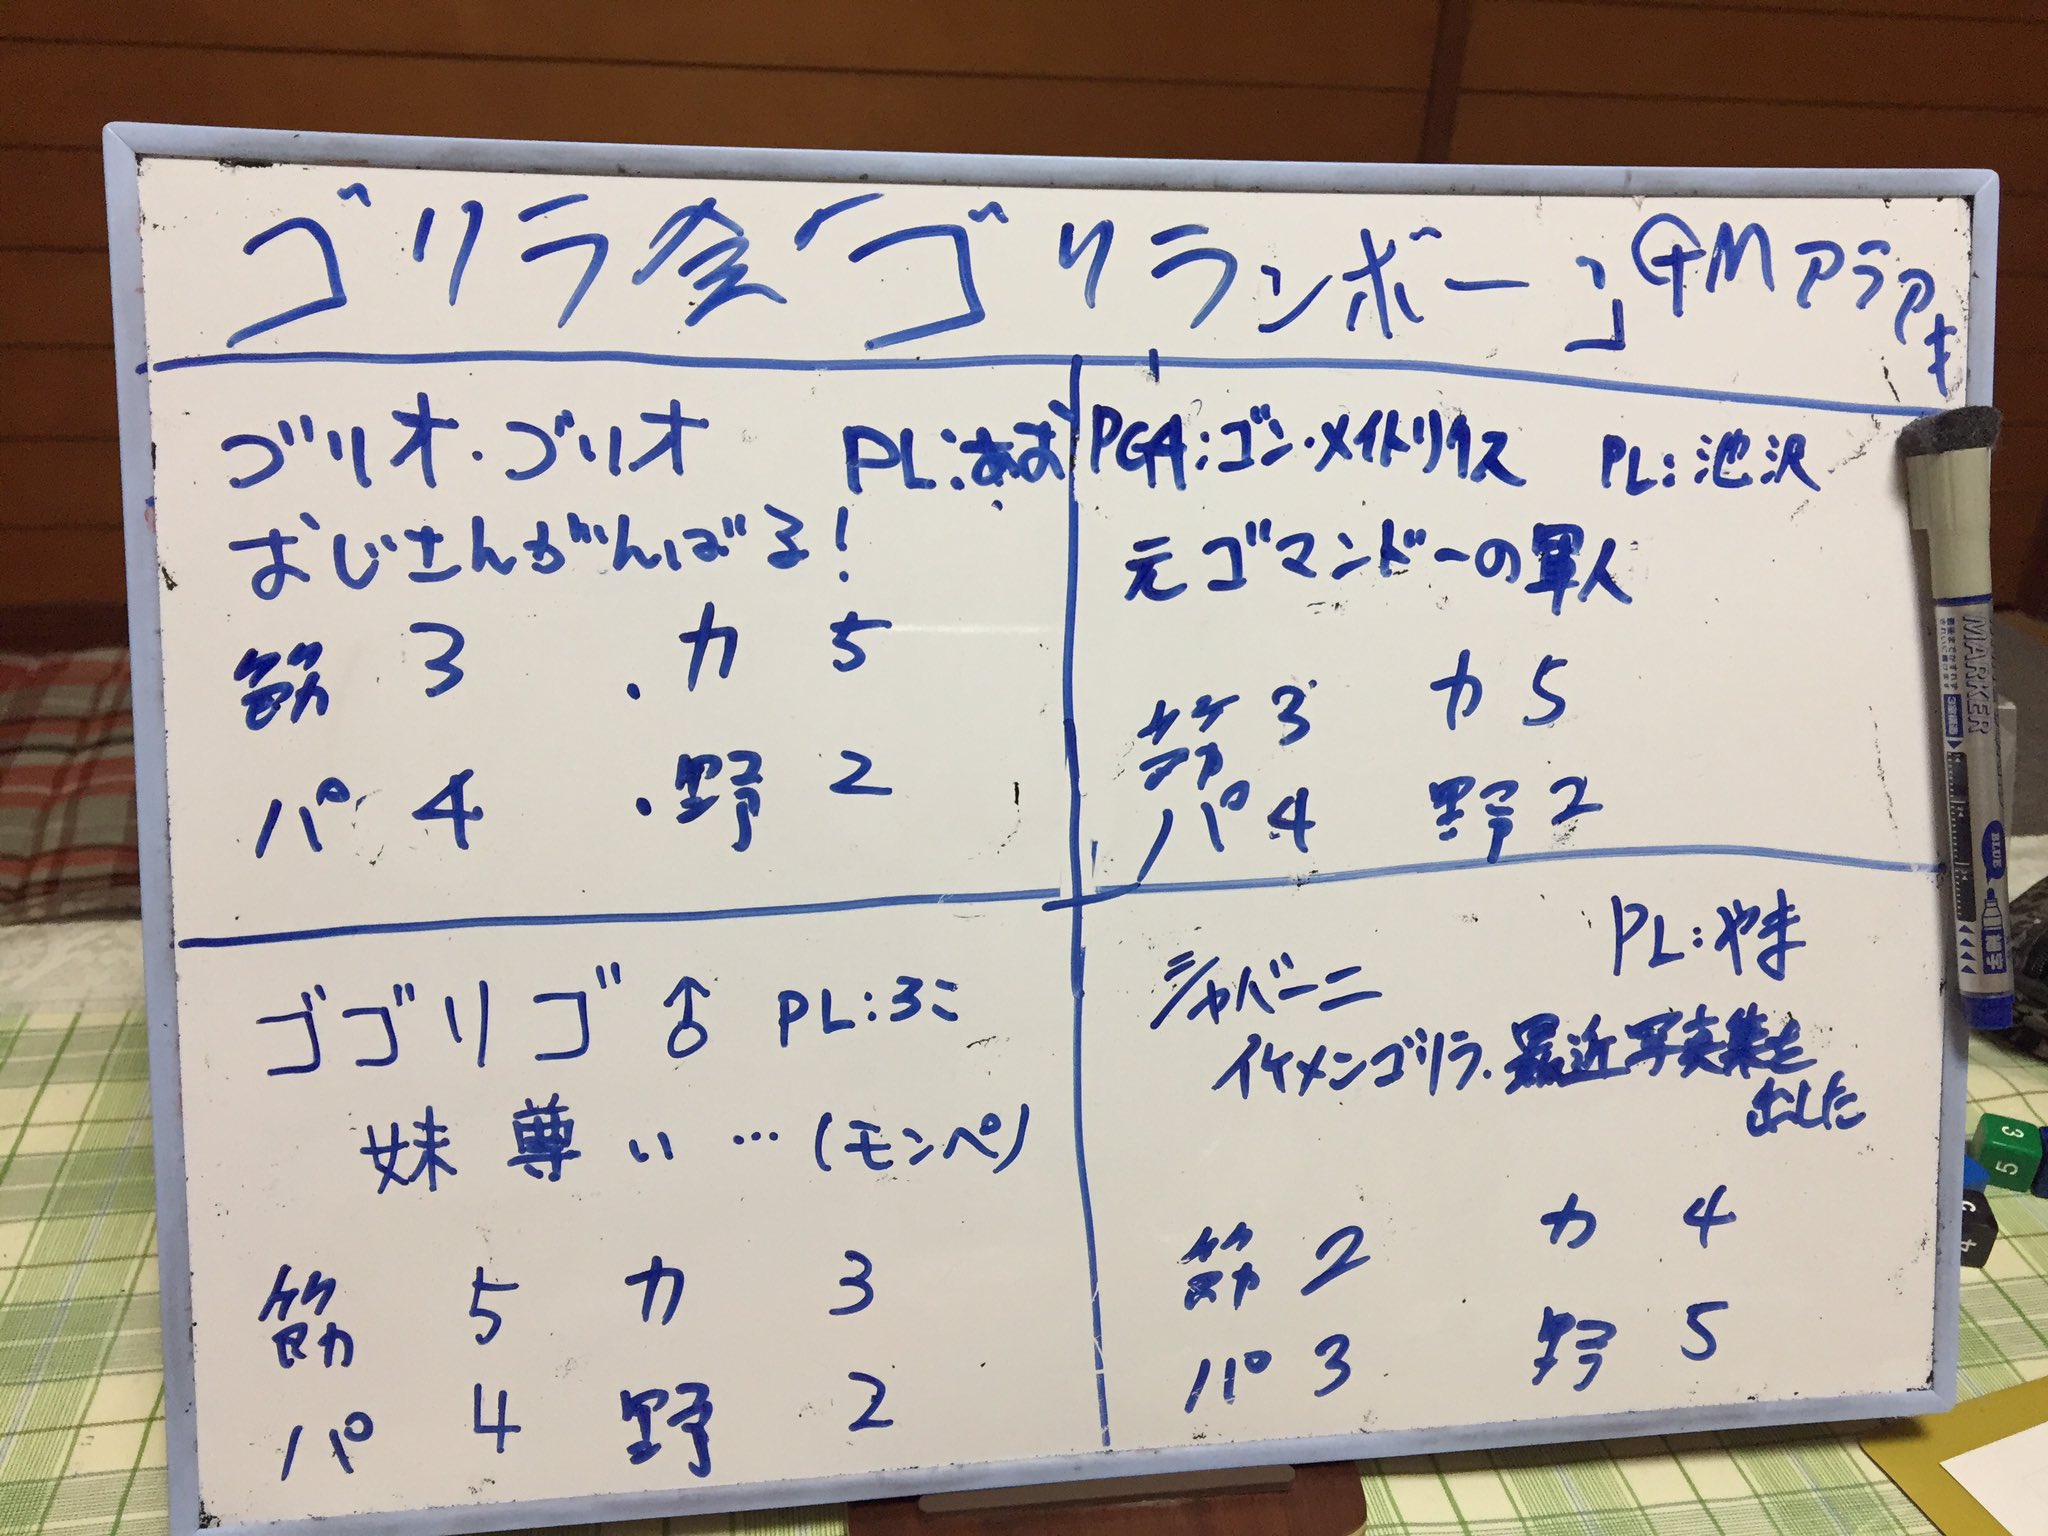 ゴリラ会「ゴリランボー」GMアラアキ
ゴリオ・ゴリオ PL:あお
おじさんがんばる!
筋 3 ・力 5
パ 4 ・野 2
PGA:ゴン・メイトリクス PL:池沢
元ゴマンドーの軍人
筋 3 力 5
パ 4 野 2
ゴゴリゴ♂ PL:ろこ
妹尊い…(モンペ)
筋 5 力 3
パ 4 野 2
PL:やま
シャバーニ
イケメンゴリラ.最近写真集を
出した
筋 2 力 4
パ 3 野 5
MARKER
BLUE
細字
3
5
4